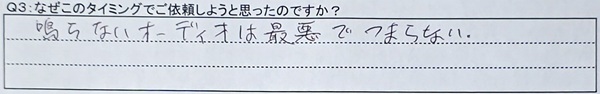 Q3:なぜこのタイミングでご依頼しようと思ったのですか？
鳴らないオーディオは最悪でつまらない.